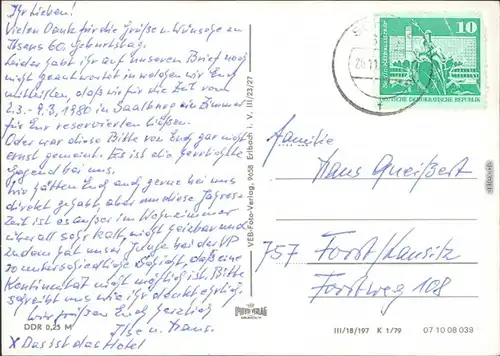 Ihr Lieben!
Vielen Dank für die Grüße u. Wünsche zu
Ilsens 60. Geburtstag.
Leider habt Ihr auf unseren Brief noch
nicht geantwortet in welchem wir Euch
mitteilten, daß wir für die Zeit vom
2.3. - 9.3. 1980 in Saalburg ein Zimmer
für Euch reservieren ließen.
Oder war diese Bitte von Euch gar nicht
ernst gemeint. Es ist die
Gegend bei uns.
Wir hätten Euch auch gerne bei uns
direkt gehabt aber um diese Jahres-
zeit ist es außer im Wohnzimmer
überall sehr kalt, nicht heizbar und
zudem hat unser Junge bei der VP
so unterschiedliche daß eine
Kontinuität nicht möglich ist. Bitte
schreibt uns wie Ihr denkt richtig.
Wir grüßen Euch herzlich
Ilse u. Hans.
X Das ist das Hotel
DDR 0,25 M
VEB-Foto-Verlag, 9658 Erlbach i. V. III/23/27
FOTO VERLAG
10
DEUTSCHE DEMOKRATISCHE REPUBLIK
Familie
Hans Queißert
757 Forst/Lausitz
Forstweg 108
III/18/197 K 1/79 07 10 08 039